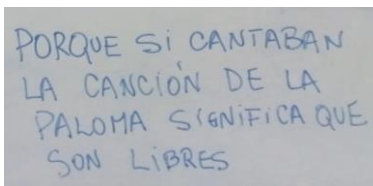 PORQUE SI CANTABAN
LA CANCIÓN DE LA
PALOMA SIGNIFICA QUE
SON LIBRES